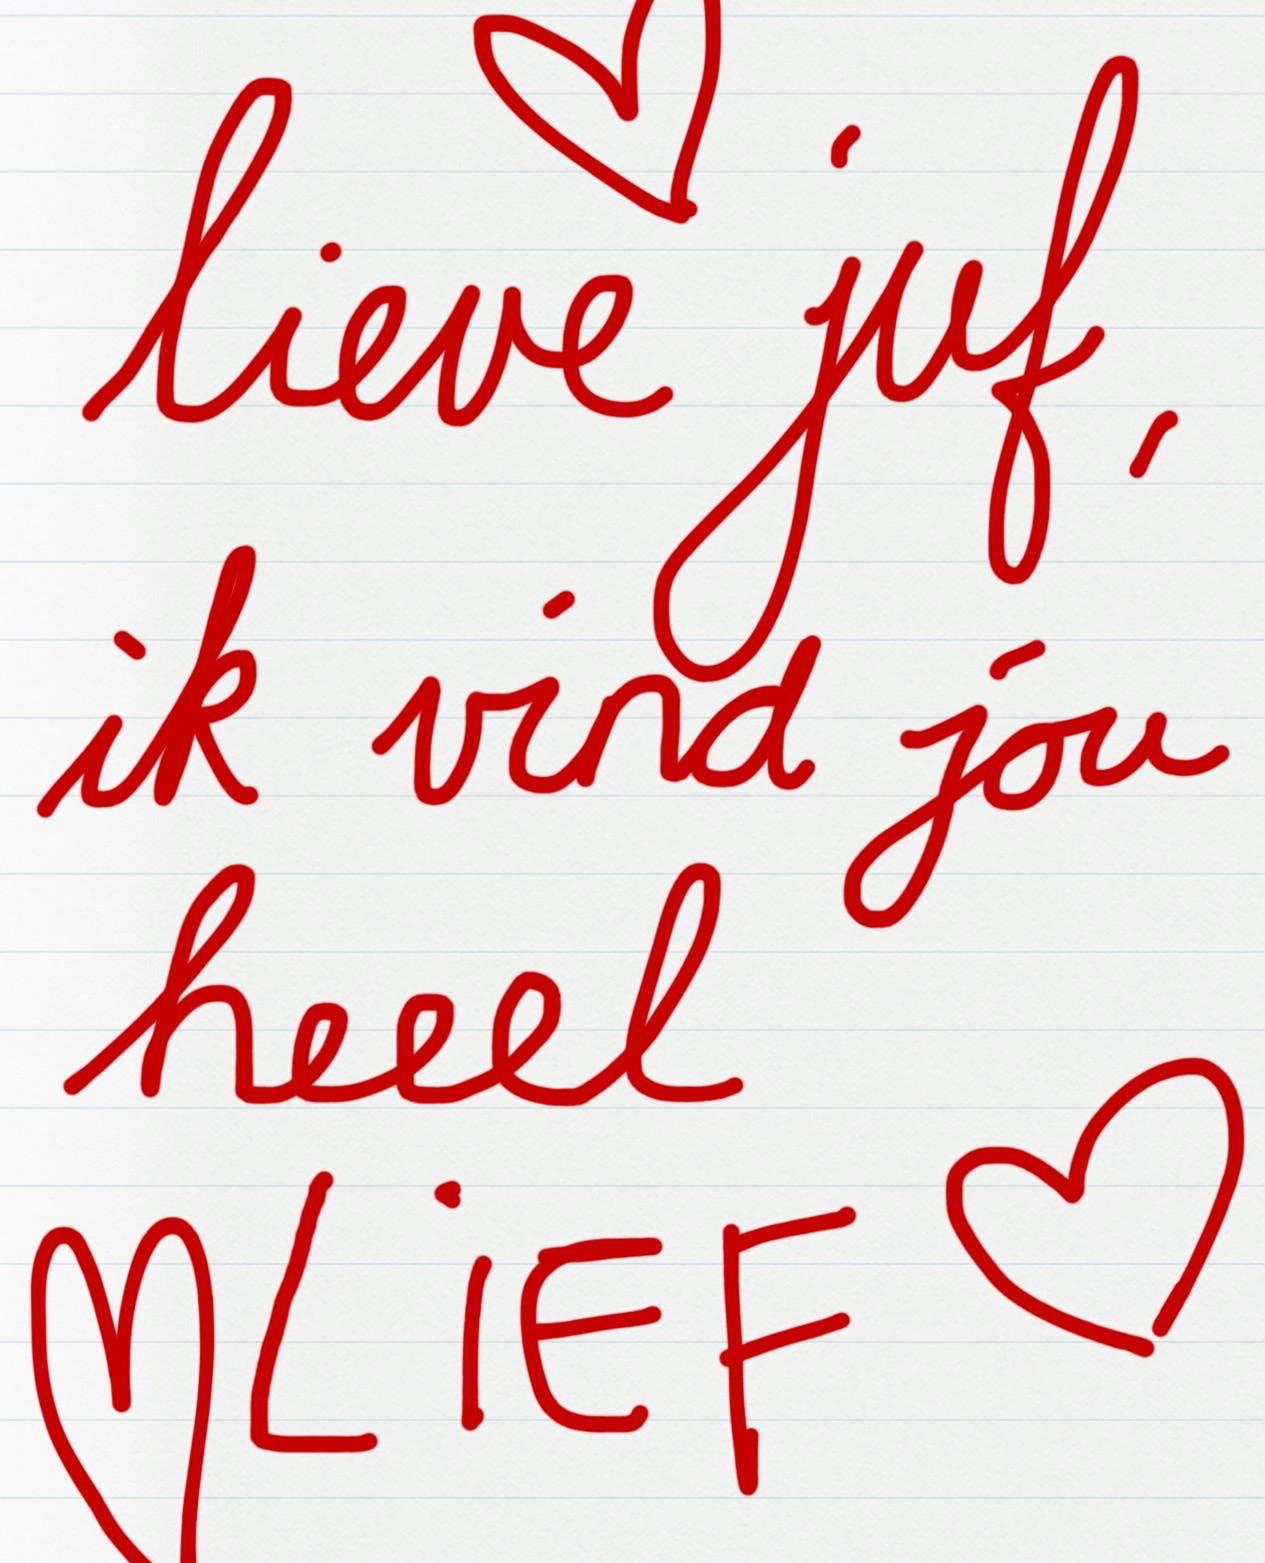 lieve juf,
ik vind jou
heeel
LiEF